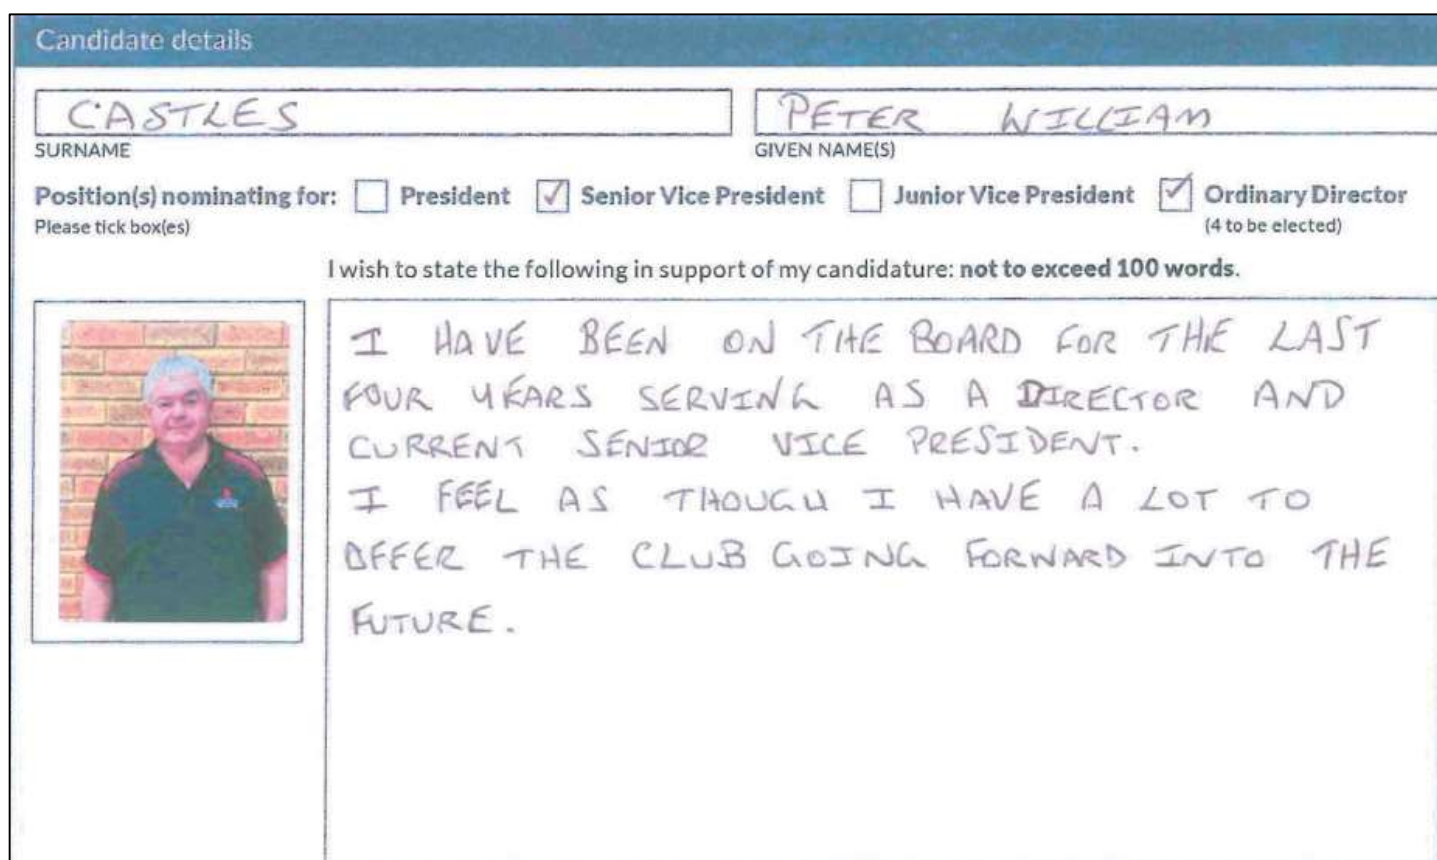 Candidate details
CASTLES
PETER WILLIAM
SURNAME
GIVEN NAME(S)
Position(s) nominating for: President ✓ Senior Vice President Junior Vice President ✓ Ordinary Director
Please tick box(es)
(4 to be elected)
I wish to state the following in support of my candidature: not to exceed 100 words.
I HAVE BEEN ON THE BOARD FOR THE LAST
FOUR YEARS SERVING AS A DIRECTOR AND
CURRENT SENIOR VICE PRESIDENT.
I FEEL AS THOUGH I HAVE A LOT TO
OFFER THE CLUB GOING FORWARD INTO THE
FUTURE.